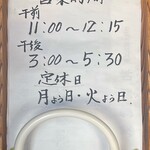 営業時間
午前
11:00～12:15
午後
3:00～5:30
定休日
月よう日・火よう日